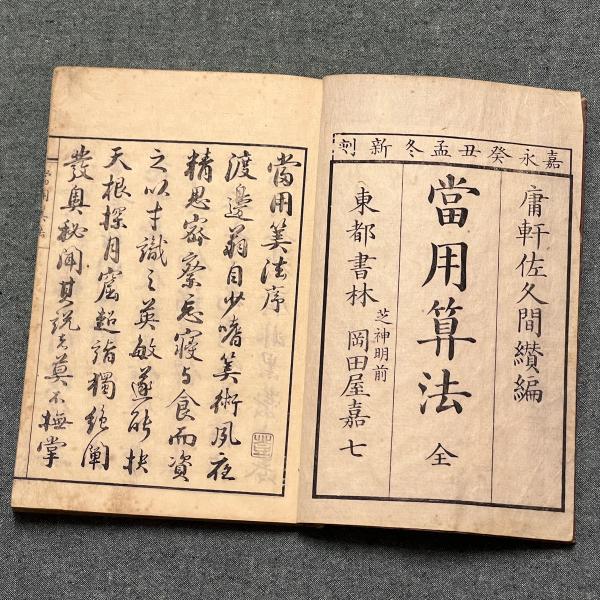 嘉永癸丑孟冬新刻
庸軒佐久間纉編
當用算法 全
東都書林 芝神明前 岡田屋嘉七
當用筭法序
渡邉翁自少嗜筭術夙夜
精思密察忘寝与食而資
之以才識之英敏遂能抉
天根探月窟超詣獨絶闡
發奥秘聞其説者莫不撫掌